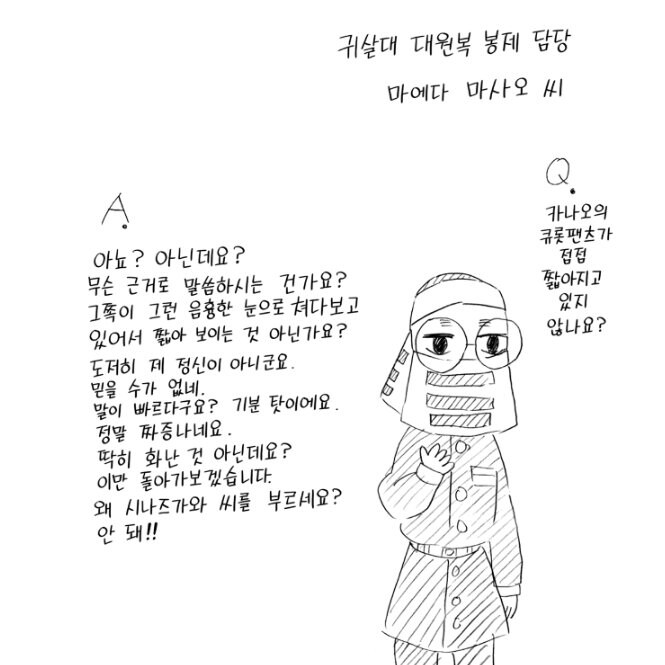 귀살대 대원복 봉제 담당
마에다 마사오 씨
Q.
카나오의
큐롯팬츠가
점점
짧아지고
있지
않나요?
A.
아뇨? 아닌데요?
무슨 근거로 말씀하시는 건가요?
그쪽이 그런 음흉한 눈으로 쳐다보고
있어서 짧아 보이는 것 아닌가요?
도저히 제 정신이 아니군요.
믿을 수가 없네.
말이 빠르다구요? 기분 탓이에요.
정말 짜증나네요.
딱히 화난 것 아닌데요?
이만 돌아가보겠습니다.
왜 시나즈가와 씨를 부르세요?
안 돼!!